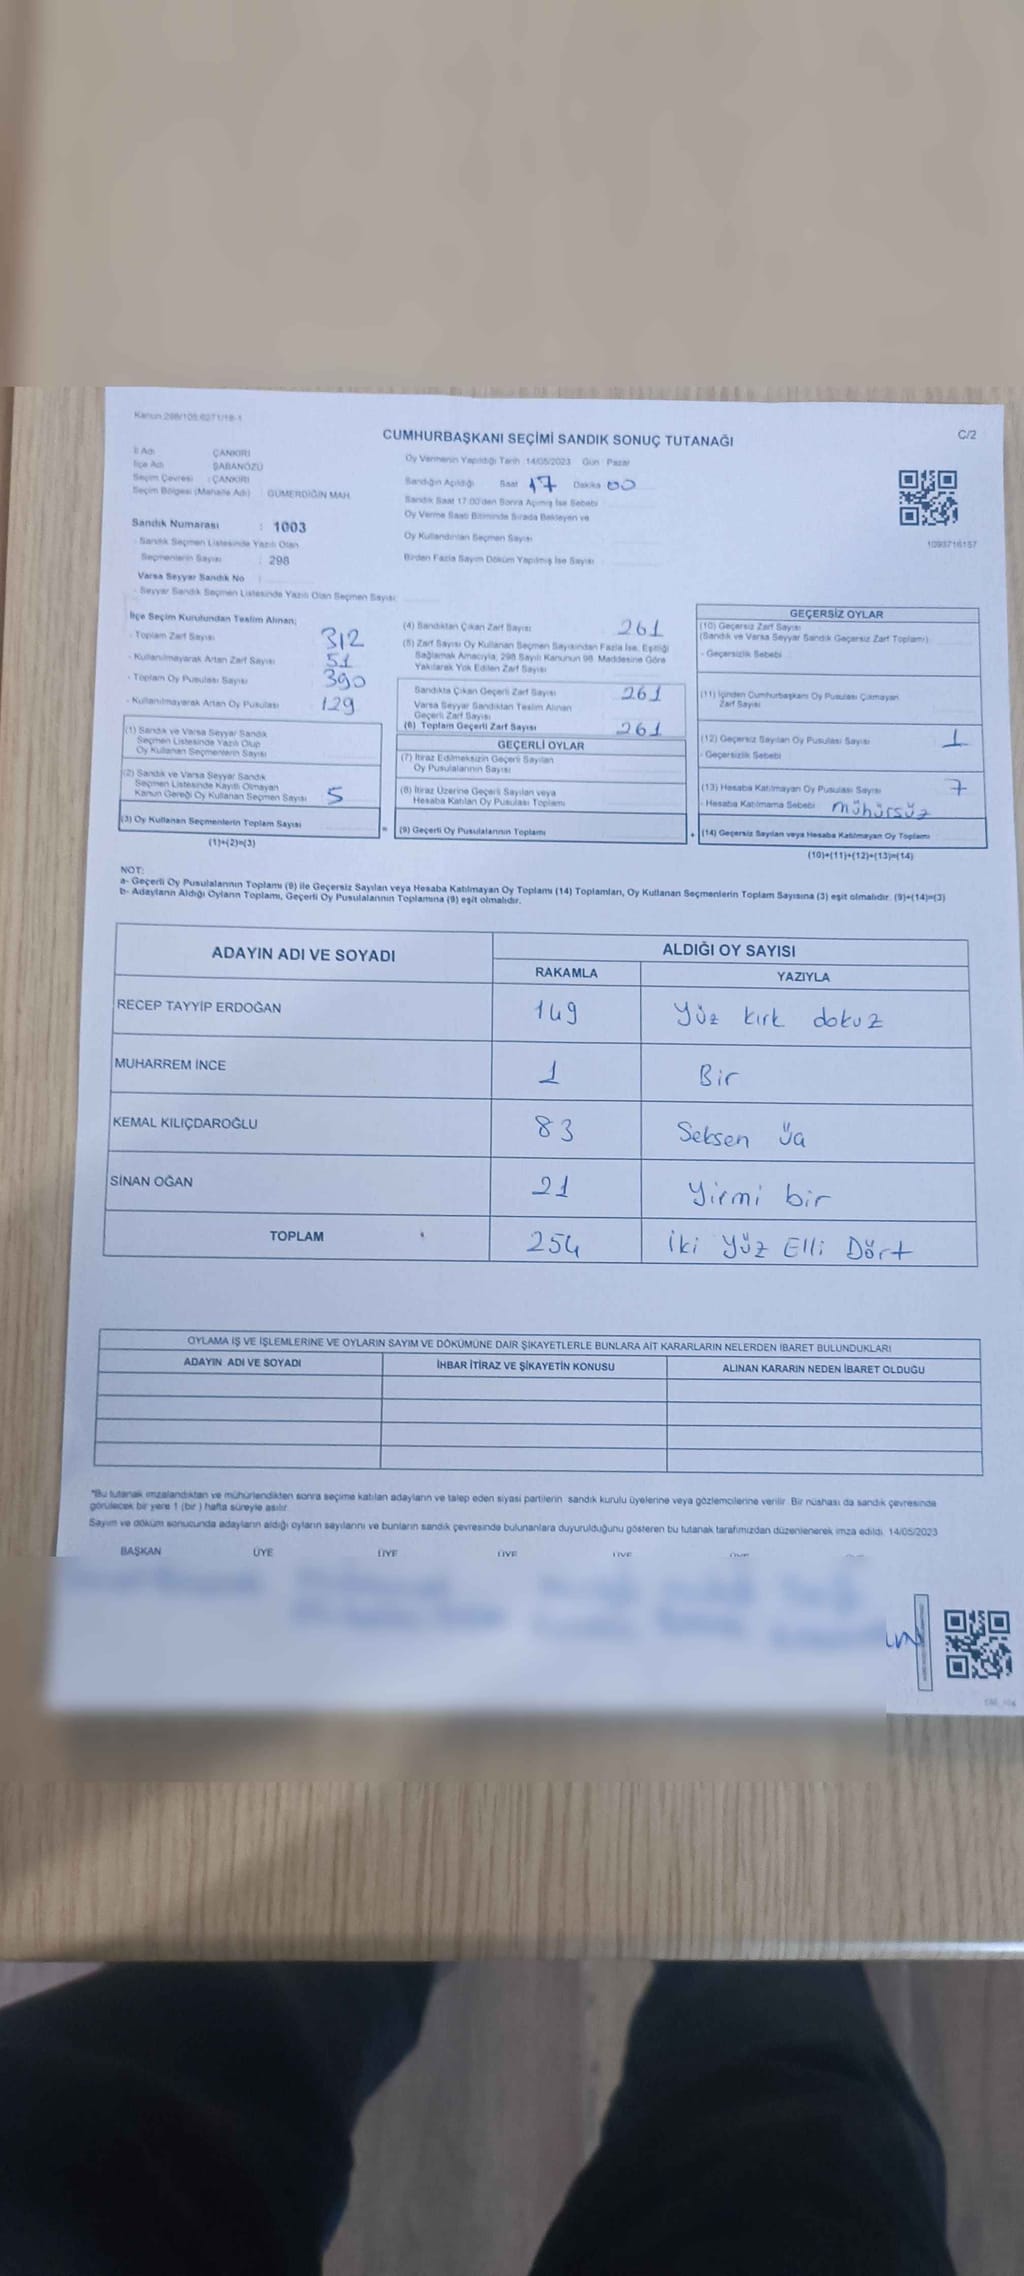 Kanun 298/105;6271/19-1
C/2
CUMHURBAŞKANI SEÇİMİ SANDIK SONUÇ TUTANAĞI
İl Adı : ÇANKIRI
İlçe Adı : ŞABANÖZÜ
Seçim Çevresi : ÇANKIRI
Seçim Bölgesi (Mahalle Adı) : GÜMERDİĞİN MAH.
Sandık Numarası : 1003
- Sandık Seçmen Listesinde Yazılı Olan
Seçmenlerin Sayısı : 298
Varsa Seyyar Sandık No :
- Seyyar Sandık Seçmen Listesinde Yazılı Olan Seçmen Sayısı:
Oy Vermenin Yapıldığı Tarih :14/05/2023 Gün : Pazar
Sandığın Açıldığı Saat 17 Dakika 00
Sandık Saat 17.00'den Sonra Açılmış İse Sebebi
Oy Verme Saati Bitiminde Sırada Bekleyen ve
Oy Kullandırılan Seçmen Sayısı
Birden Fazla Sayım Döküm Yapılmış İse Sayısı
1093716157
İlçe Seçim Kurulundan Teslim Alınan;
- Toplam Zarf Sayısı 312
- Kullanılmayarak Artan Zarf Sayısı 51
- Toplam Oy Pusulası Sayısı 390
- Kullanılmayarak Artan Oy Pusulası 129
(1) Sandık ve Varsa Seyyar Sandık
Seçmen Listesinde Yazılı Olup
Oy Kullanan Seçmenlerin Sayısı
(2) Sandık ve Varsa Seyyar Sandık
Seçmen Listesinde Kayıtlı Olmayan
Kanun Gereği Oy Kullanan Seçmen Sayısı 5
(3) Oy Kullanan Seçmenlerin Toplam Sayısı
(1)+(2)=(3)
(4) Sandıktan Çıkan Zarf Sayısı 261
(5) Zarf Sayısı Oy Kullanan Seçmen Sayısından Fazla İse, Eşitliği
Sağlamak Amacıyla, 298 Sayılı Kanunun 98. Maddesine Göre
Yakılarak Yok Edilen Zarf Sayısı
Sandıkta Çıkan Geçerli Zarf Sayısı 261
Varsa Seyyar Sandıktan Teslim Alınan
Geçerli Zarf Sayısı
(6) Toplam Geçerli Zarf Sayısı 261
GEÇERLİ OYLAR
(7) İtiraz Edilmeksizin Geçerli Sayılan
Oy Pusulalarının Sayısı
(8) İtiraz Üzerine Geçerli Sayılan veya
Hesaba Katılan Oy Pusulası Toplamı
= (9) Geçerli Oy Pusulalarının Toplamı
GEÇERSİZ OYLAR
(10) Geçersiz Zarf Sayısı
(Sandık ve Varsa Seyyar Sandık Geçersiz Zarf Toplamı)
- Geçersizlik Sebebi
(11) İçinden Cumhurbaşkanı Oy Pusulası Çıkmayan
Zarf Sayısı
(12) Geçersiz Sayılan Oy Pusulası Sayısı 1
- Geçersizlik Sebebi
(13) Hesaba Katılmayan Oy Pusulası Sayısı 7
- Hesaba Katılmama Sebebi mühürsüz
+ (14) Geçersiz Sayılan veya Hesaba Katılmayan Oy Toplamı
(10)+(11)+(12)+(13)=(14)
NOT:
a- Geçerli Oy Pusulalarının Toplamı (9) ile Geçersiz Sayılan veya Hesaba Katılmayan Oy Toplamı (14) Toplamları, Oy Kullanan Seçmenlerin Toplam Sayısına (3) eşit olmalıdır. (9)+(14)=(3)
b- Adayların Aldığı Oyların Toplamı, Geçerli Oy Pusulalarının Toplamına (9) eşit olmalıdır.
ADAYIN ADI VE SOYADI ALDIĞI OY SAYISI
RAKAMLA YAZIYLA
RECEP TAYYİP ERDOĞAN 149 Yüz kırk dokuz
MUHARREM İNCE 1 Bir
KEMAL KILIÇDAROĞLU 83 Seksen
SİNAN OĞAN 21 Yirmi bir
TOPLAM 254 İki Yüz Elli Dört
OYLAMA İŞ VE İŞLEMLERİNE VE OYLARIN SAYIM VE DÖKÜMÜNE DAİR ŞİKAYETLERLE BUNLARA AİT KARARLARIN NELERDEN İBARET BULUNDUKLARI
ADAYIN ADI VE SOYADI İHBAR İTİRAZ VE ŞİKAYETİN KONUSU ALINAN KARARIN NEDEN İBARET OLDUĞU
*Bu tutanak imzalandıktan ve mühürlendikten sonra seçime katılan adayların ve talep eden siyasi partilerin sandık kurulu üyelerine veya gözlemcilerine verilir. Bir nüshası da sandık çevresinde
görülecek bir yere 1 (bir ) hafta süreyle asılır.
Sayım ve döküm sonucunda adayların aldığı oyların sayılarını ve bunların sandık çevresinde bulunanlara duyurulduğunu gösteren bu tutanak tarafımızdan düzenlenerek imza edildi. 14/05/2023
BAŞKAN ÜYE ÜYE ÜYE ÜYE ÜYE